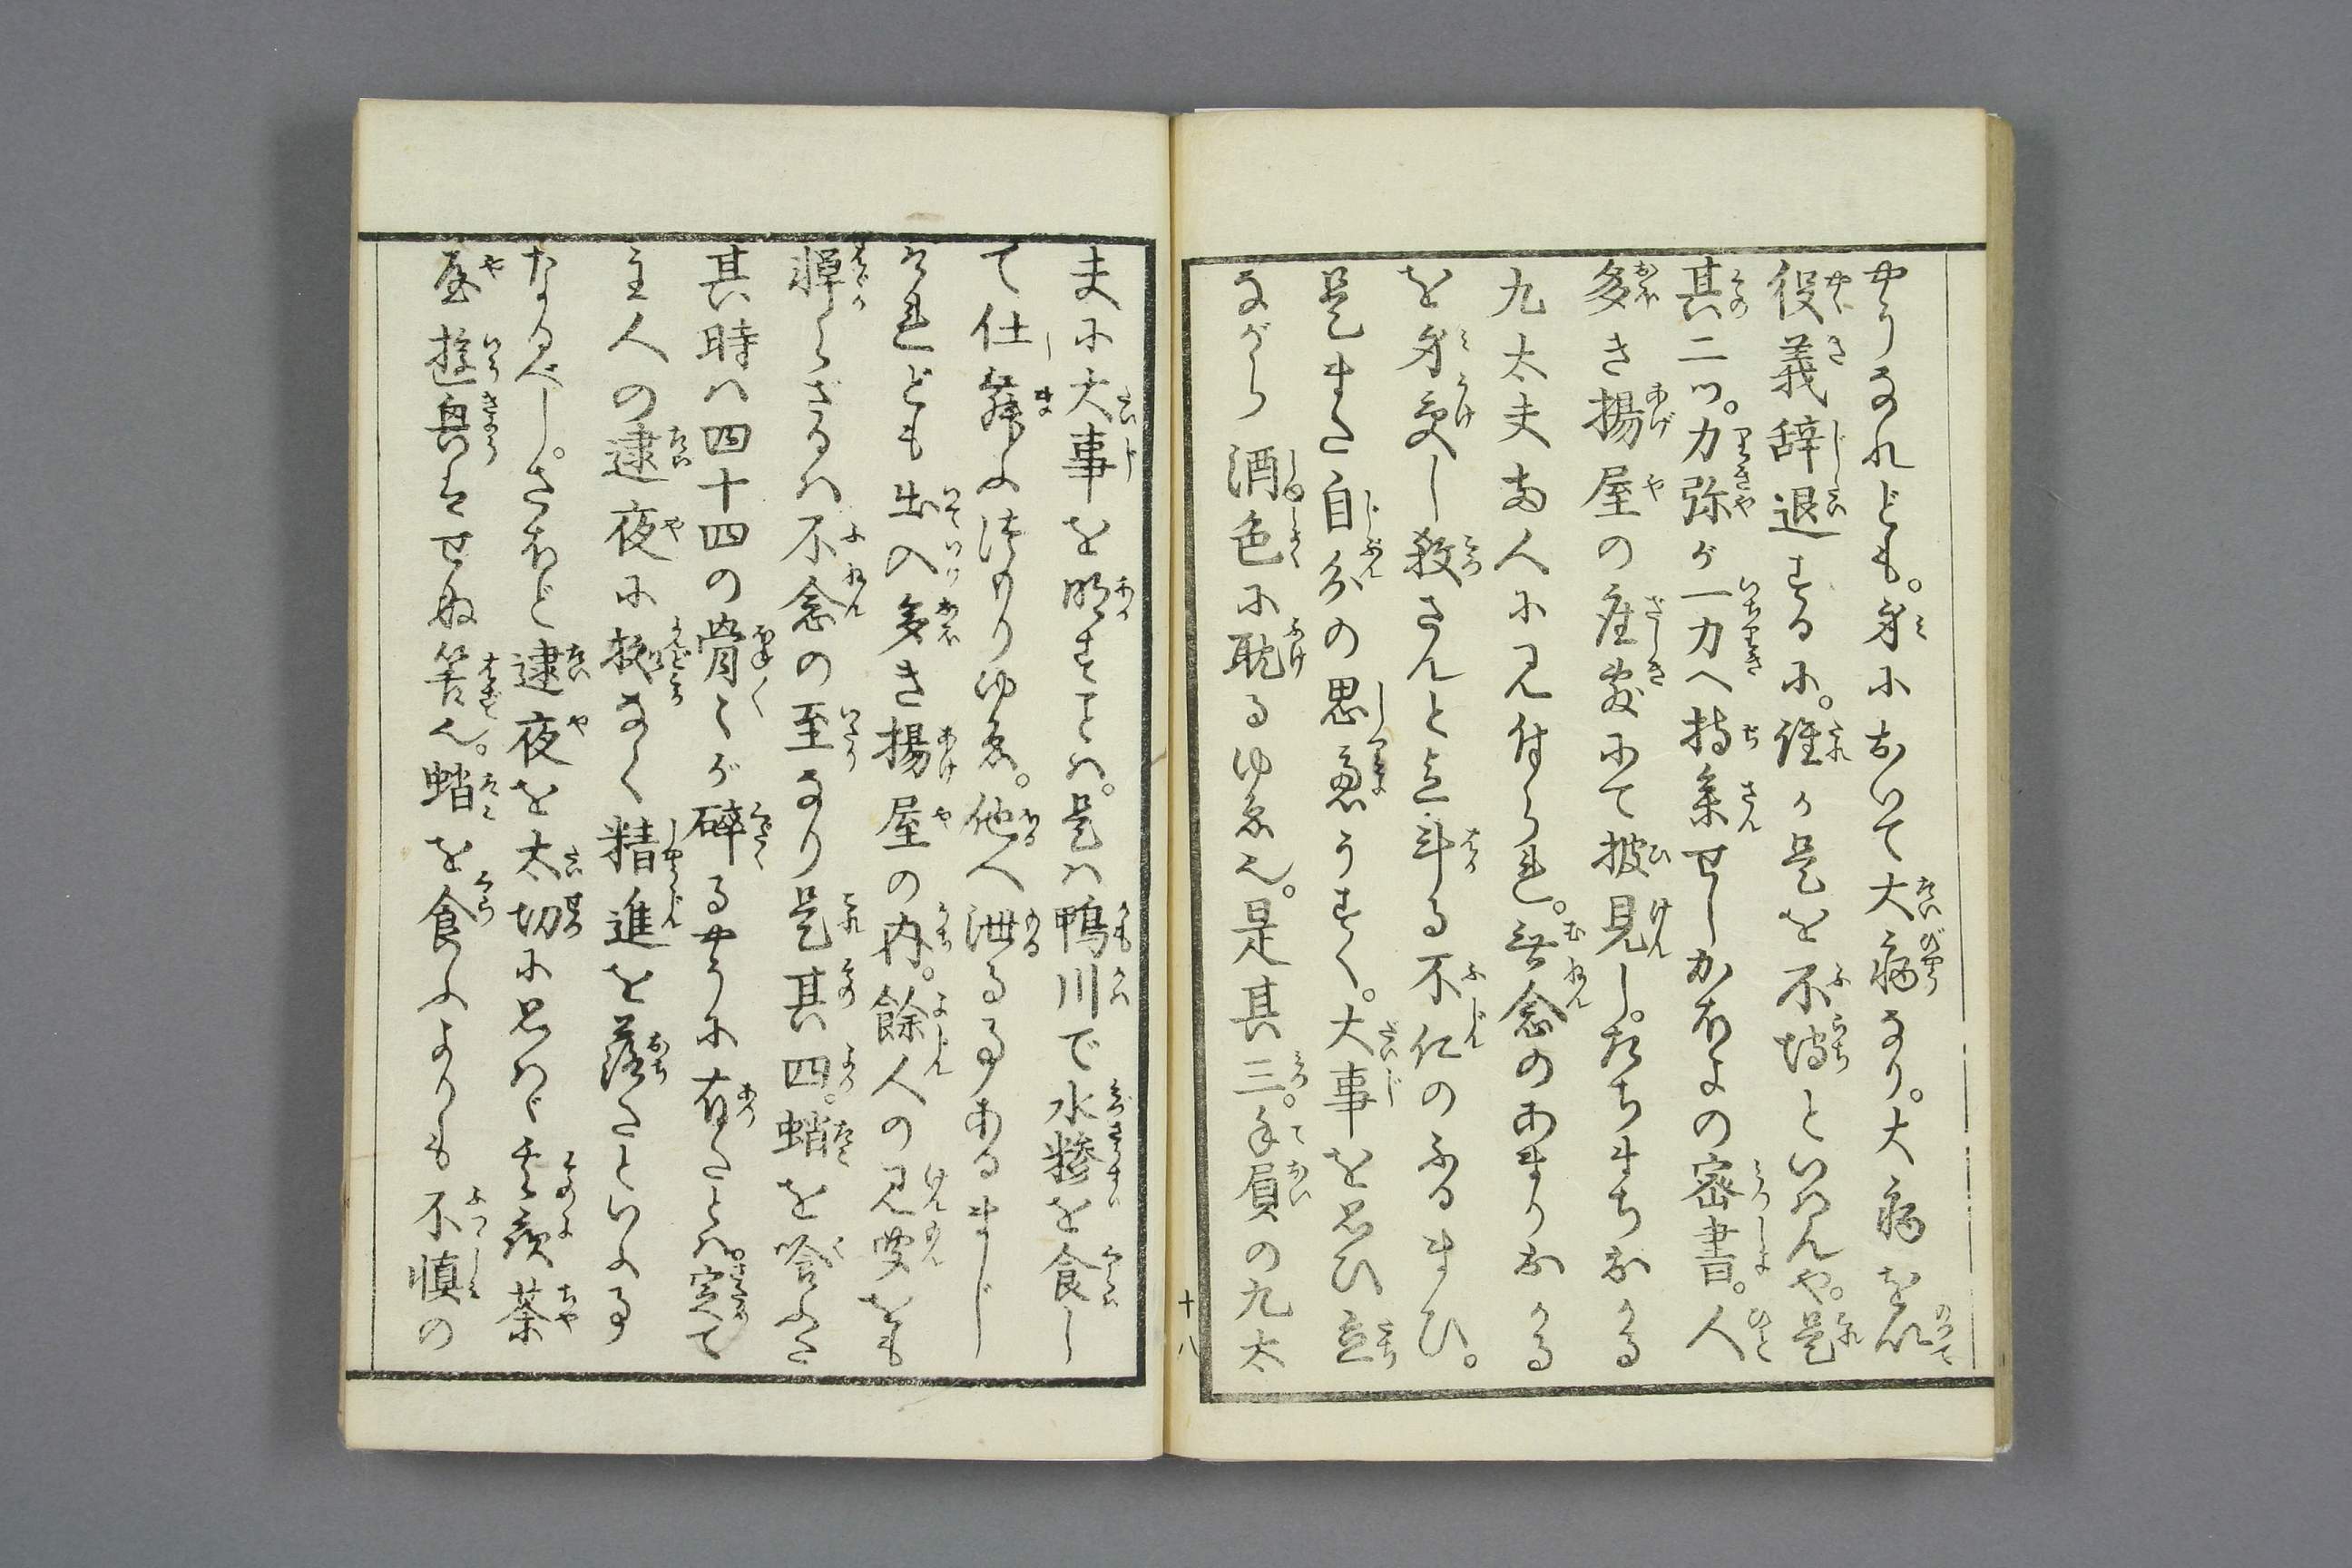 やうなれども。身において大病なり。大病を以て
役義辞退するに。誰か是を不埒といはんや。是
其二ツ。力弥が一力へ持参せしかほよの密書。人
多き揚屋の座敷にて披見し。たちまちおかる
九太夫両人に見付られ。無念のあまりおかる
を身受し殺さんと立斗る不仁のふるまひ。
是また自分の思慮うすく。大事を思ひ立
ながら酒色に耽るゆゑ也。是其三。手負の九太
十八
夫に大事を明すことハ。是ハ鴨川で水糝を食し
て仕舞ふつもりゆゑ。他へ泄るゝ事あるまじ
けれども出入多き揚屋の内。餘人の見聞をも
憚らざるハ不念の至なり是其四。蛸を喰ふた
其時ハ四十四の骨〻が碎るやうに有たとハ。定て
主人の逮夜に拠なく精進を落たといふ事
なるべし。さほど逮夜を太切に思ハヾ其夜茶
屋遊興ハせぬ筈也。蛸を食ふよりも不慎の